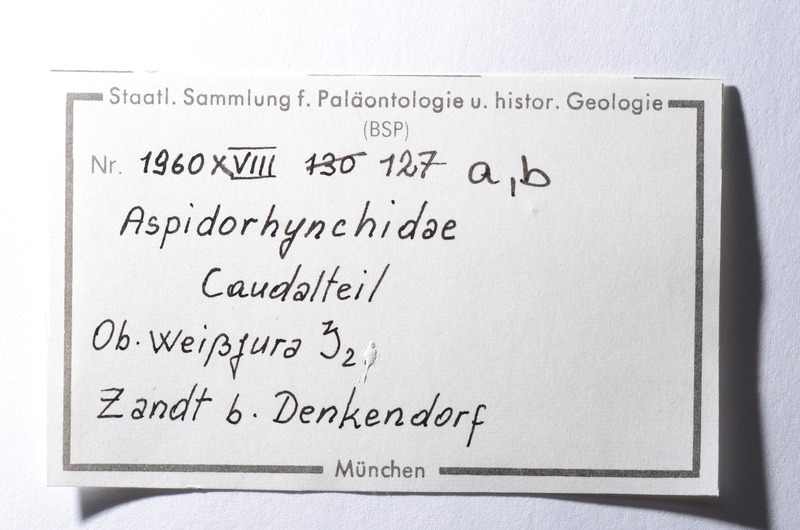 Staatl. Sammlung f. Paläontologie u. histor. Geologie
(BSP)
Nr. 1960 XVIII 130 127 a, b
Aspidorhynchidae
Caudalteil
Ob. Weißjura ζ2
Zandt b. Denkendorf
München